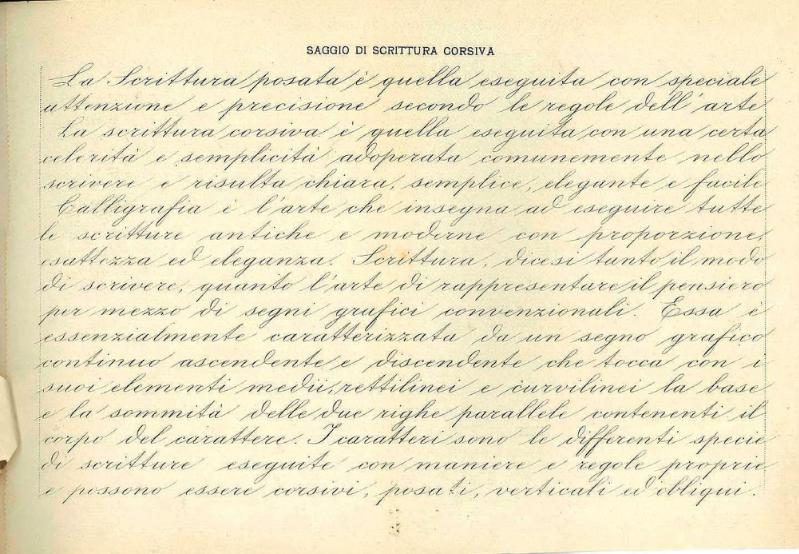 SAGGIO DI SCRITTURA CORSIVA
La Scrittura posata è quella eseguita con speciale
attenzione e precisione secondo le regole dell'arte
La scrittura corsiva è quella eseguita con una certa
celerità e semplicità adoperata comunemente nello
scrivere e risulta chiara, semplice, elegante e facile
Calligrafia è l'arte che insegna ad eseguire tutte
le scritture antiche e moderne con proporzione,
esattezza ed eleganza. Scrittura, dicesi tanto il modo
di scrivere, quanto l'arte di rappresentare il pensiero
per mezzo di segni grafici convenzionali. Essa è
essenzialmente caratterizzata da un segno grafico
continuo ascendente e discendente che tocca con i
suoi elementi medii, rettilinei e curvilinei la base
e la sommità delle due righe parallele contenenti il
corpo del carattere. I caratteri sono le differenti specie
di scritture eseguite con maniere e regole proprie
e possono essere corsivi, posati, verticali ed obliqui.